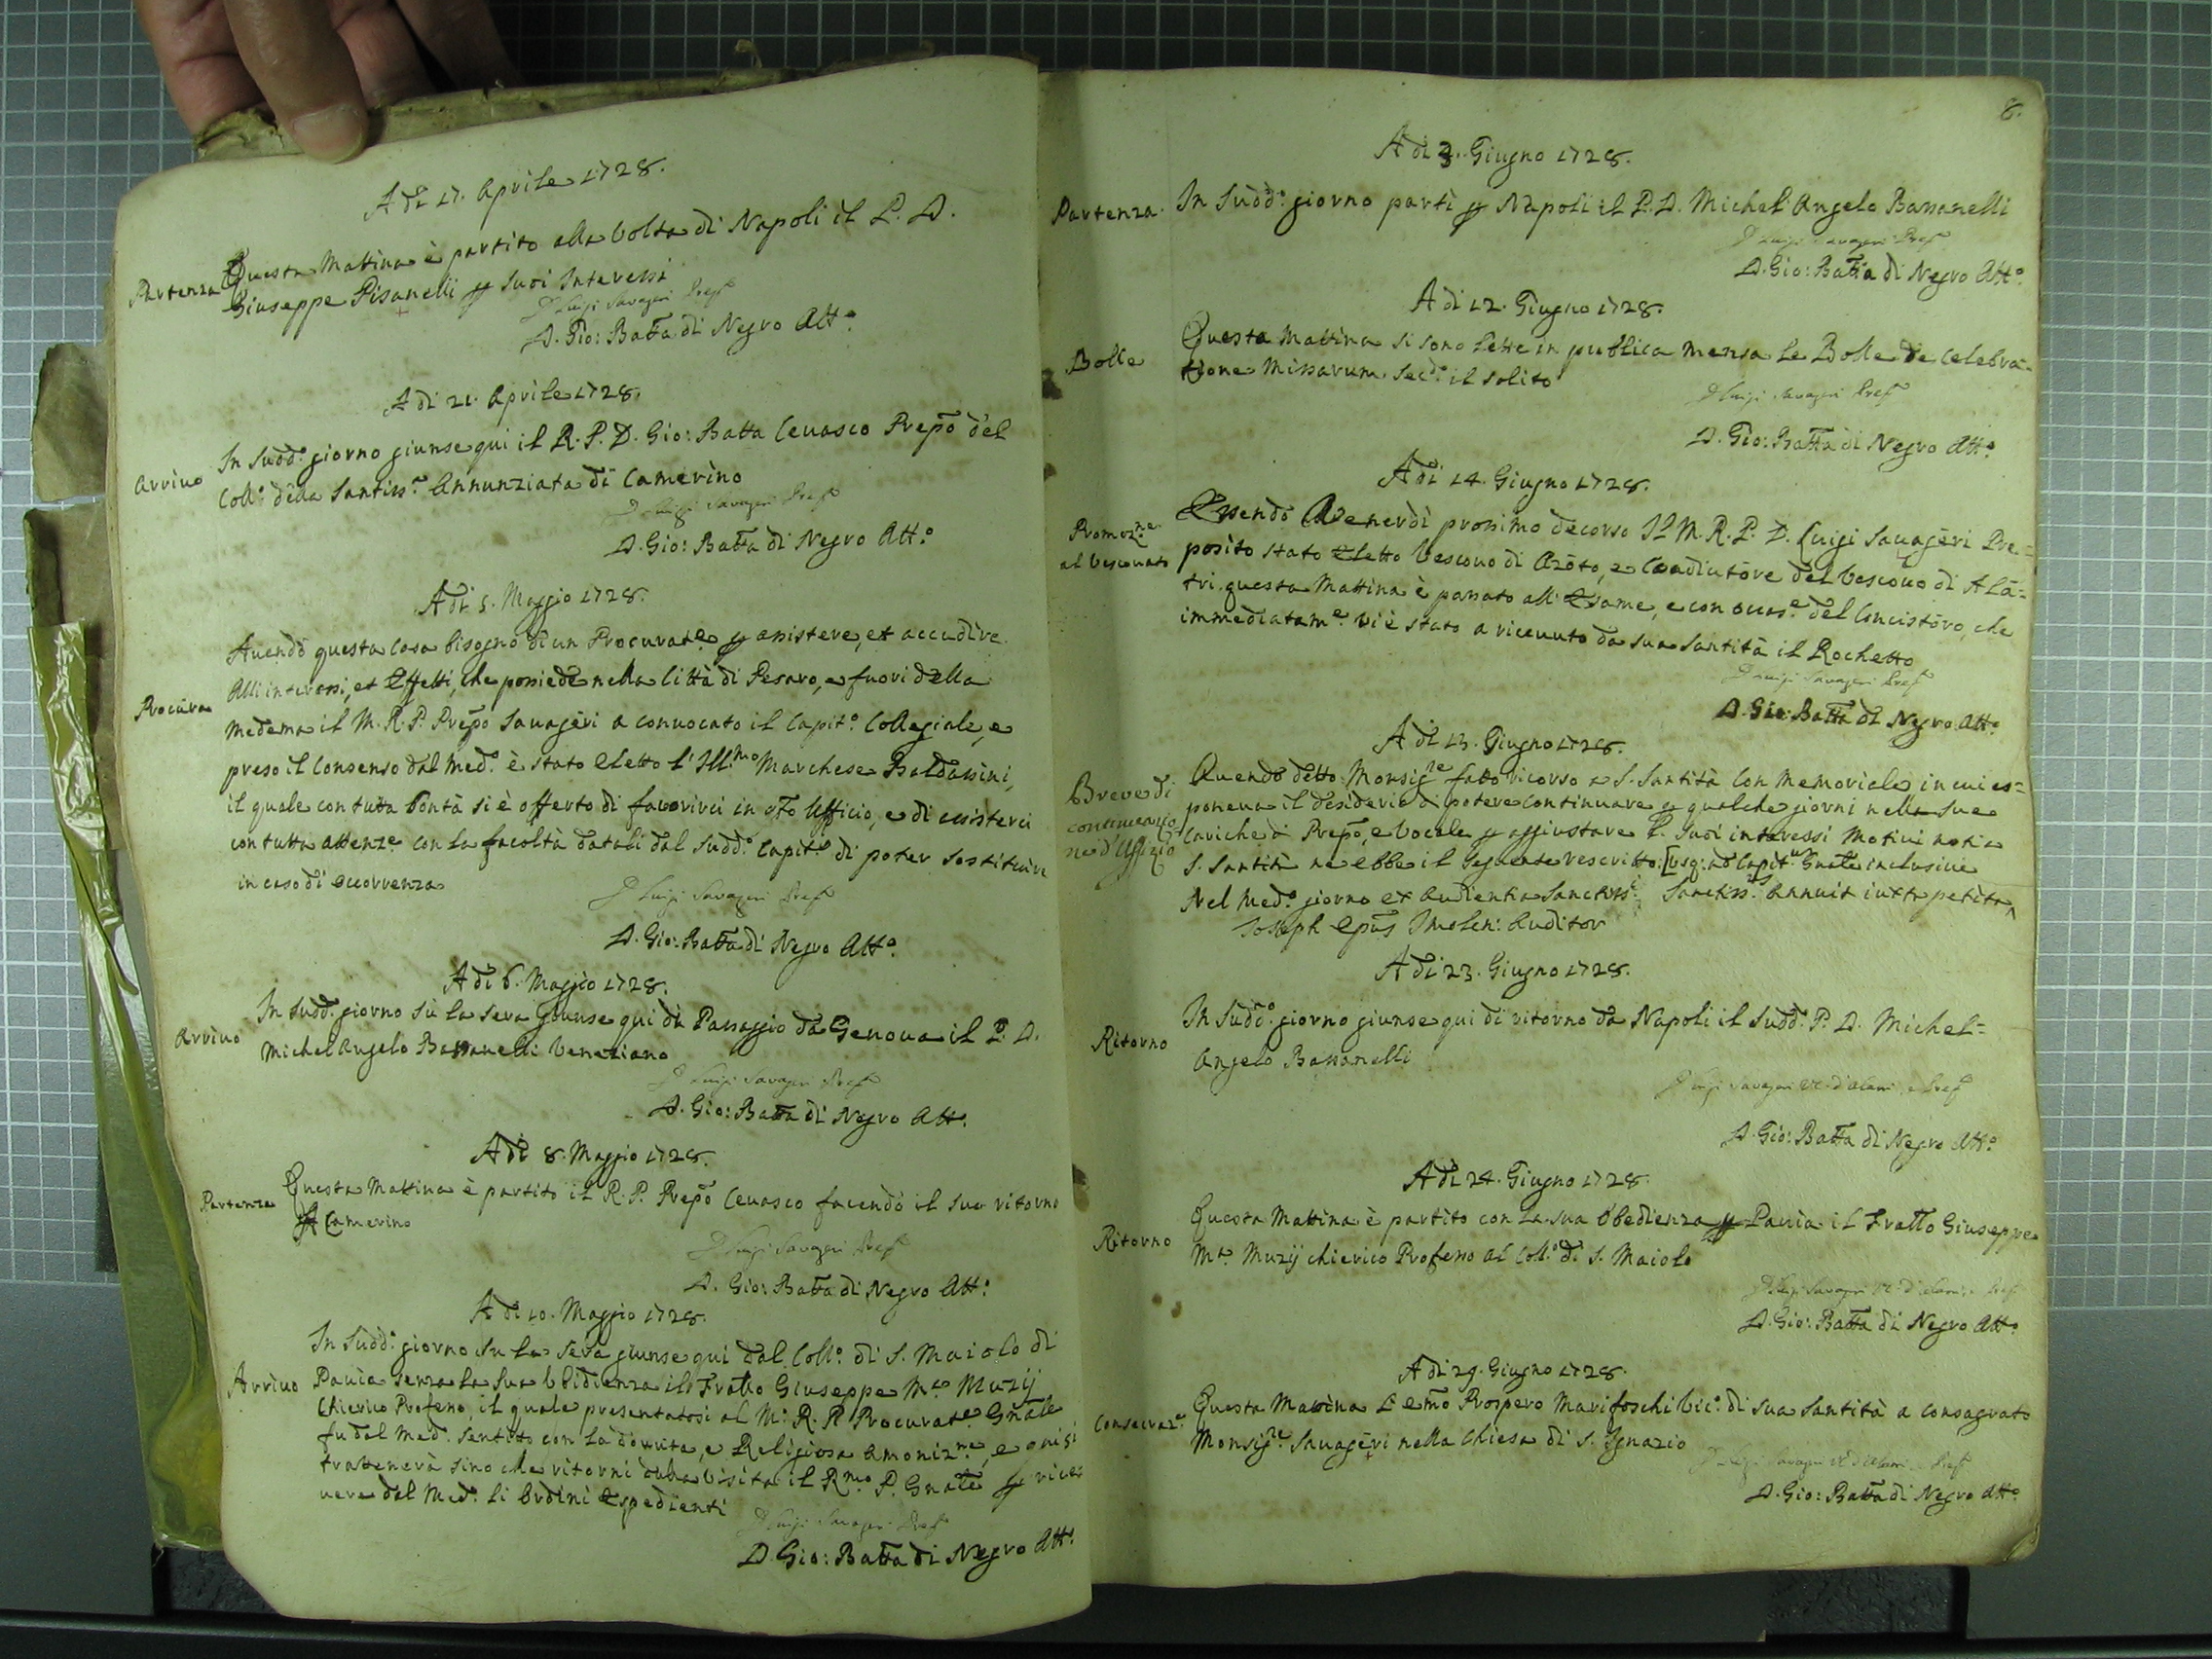 A dì 17. Aprile 1728.
Partenza Questa Mattina è partito alla volta di Napoli il P. D.
Giuseppe Pisanelli p suoi Interessi
D Luigi Savageri Prep°
D. Gio: Batta di Negro Att.°
A dì 21. Aprile 1728.
Arrivo In Sudd.° giorno giunse qui il R. P. D. Gio: Batta Cevasco Prepo del
Coll.° della Santiss.ª Annunziata di Camerino
D Luigi Savageri Prep°
D. Gio: Batta di Negro Att.°
A dì 5. Maggio 1728.
Avendo questa Casa bisogno di un Procurat.e p assistere, et accudire
Alli interessi, et Effetti, che possiede nella Città di Pesaro, e fuori della
Procura medema il M. R. P. Prepo Savageri a convocato il Capit.° Collegiale, e
preso il Consenso dal med.° è stato eletto l'Ill.mo Marchese Baldassini,
il quale con tutta bontà si è offerto di favorirci in qto Ufficio, e di assisterci
con tutta attenz.e con la facoltà datali dal Sudd.° Capit.° di poter sostituire
in caso di occorrenza
D Luigi Savageri Prep°
D. Gio: Batta di Negro Att.°
A dì 6. Maggio 1728.
Arrivo In Sudd.° giorno sù la sera giunse qui di Passaggio da Genova il P. D.
Michel Angelo Bassanelli Veneziano
D Luigi Savageri Prep°
D. Gio: Batta di Negro Att.°
A dì 8. Maggio 1728.
Partenza Questa Mattina è partito il R. P. Prepo Cevasco facendo il suo ritorno
A Camerino
D Luigi Savageri Prep°
D. Gio: Batta di Negro Att.°
A dì 10. Maggio 1728.
In Sudd.° giorno su la sera giunse qui dal Coll.° di S. Maiolo di
Arrivo Pavia senza la sua Ubidienza il Fratto Giuseppe M.ª Muzij
Chierico Professo, il quale presentatosi al M. R. P. Procurat.e Gnale
fu dal med.° sentito con la dovuta, e Religiosa amoniz.ne, e qui si
tratterrà sino che ritorni dalla Visita il R.mo P. Gnale p rice
vere dal Med.° li Ordini Espedienti
D Luigi Savageri Prep°
D. Gio: Batta di Negro Att.°
8.
A dì 3. Giugno 1728.
Partenza. In Sudd.° giorno partì p Napoli il P. D. Michel Angelo Bassanelli
D Luigi Savageri Prep°
D. Gio: Batta di Negro Att.°
A dì 12. Giugno 1728.
Bolle Questa Mattina si sono lette in publica Mensa le Bolle de Celebra=
tione Missarum sec.° il solito
D Luigi Savageri Prep°
D. Gio: Batta di Negro Att.°
A dì 14. Giugno 1728.
Promoz.ne al Vescovato Essendo Venerdì prossimo decorso Il M. R. P. D. Luigi Savageri Pre=
posito stato eletto Vescovo di Azoto, e Coadiutore del Vescovo di Ala=
tri, questa Mattina è passato all' Esame, e con occas.e del Concistoro, che
immediatam.e vi è stato a ricevuto da Sua Santità il Rochetto
D Luigi Savageri Prep°
D. Gio: Batta di Negro Att.°
A dì 13. Giugno 1728.
Breve di continuazione d'Uffizio Avendo detto Monsig.re fatto ricorso a S. Santità con Memoriale in cui es=
poneva il desiderio di potere continuare p qualche giorni nella sue
Cariche di Prepo, e Vocale p aggiustare li suoi interessi Motivi noti a
S. Santità ne ebbe il seguente rescritto: [usq: ad Capit.um Gnale inclusive
Nel Med.° giorno ex Audientia Sanctiss.i Sanctiss.us Annuit iuxta petita
Joseph Epus Imolen: Auditor
A dì 23. Giugno 1728.
Ritorno In Sudd.° giorno giunse qui di ritorno da Napoli il Sudd.° P. D. Michel=
Angelo Bassanelli
D Luigi Savageri Prep°
D. Gio: Batta di Negro Att.°
A dì 24. Giugno 1728.
Ritorno Questa Mattina è partito con la sua Obedienza p Pavia il Fratto Giuseppe
M.ª Muzij Chierico Professo al Coll.° di S. Maiolo
D Luigi Savageri Prep°
D. Gio: Batta di Negro Att.°
A dì 29. Giugno 1728.
Consacraz.e Questa Mattina L'Emo Prospero Marifoschi Vic.° di sua Santità a consagrato
Monsig.re Savageri nella Chiesa di S. Ignazio
D Luigi Savageri Prep°
D. Gio: Batta di Negro Att.°